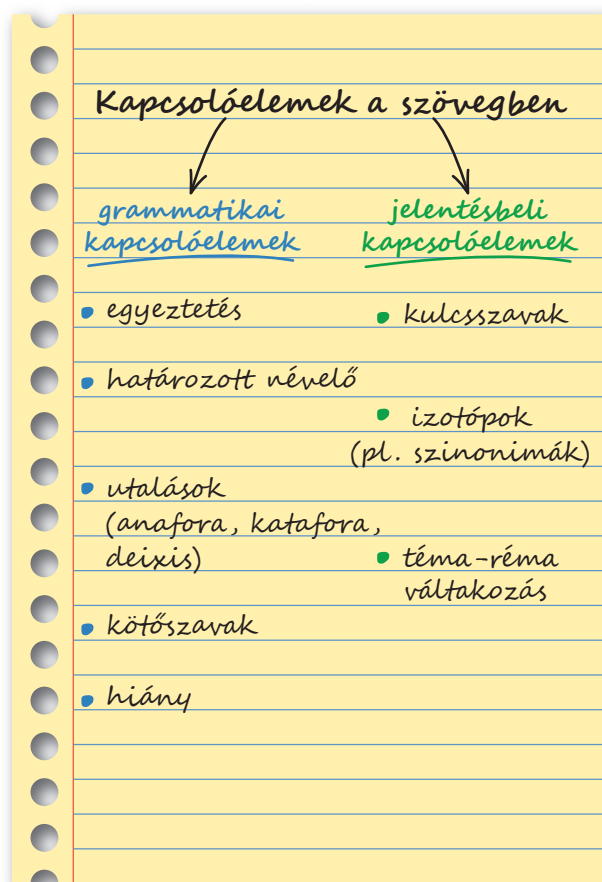 Kapcsolóelemek a szövegben
grammatikai
kapcsolóelemek
egyeztetés
határozott névelő
utalások
(anafora, katafora,
deixis)
kötőszavak
hiány
jelentésbeli
kapcsolóelemek
kulcsszavak
izotópok
(pl. szinonimák)
téma-réma
váltakozás